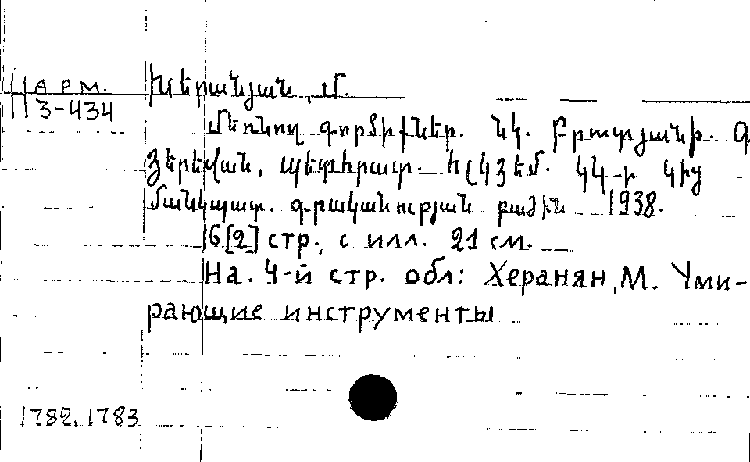 Арм. Խերանյան, Մ.
3-434
Մեռնող գործիքներ. Նկ.
Յերեվան, Պետհրատ. ՀԼԿՅԵՄ. ԿԿ-ի կից
մանկպատ. գրականության բաժին 1938.
6[2] стр., с илл. 21 см.
На. 4-й стр. обл: Херанян, М. Уми-
рающие инструменты
1782, 1783